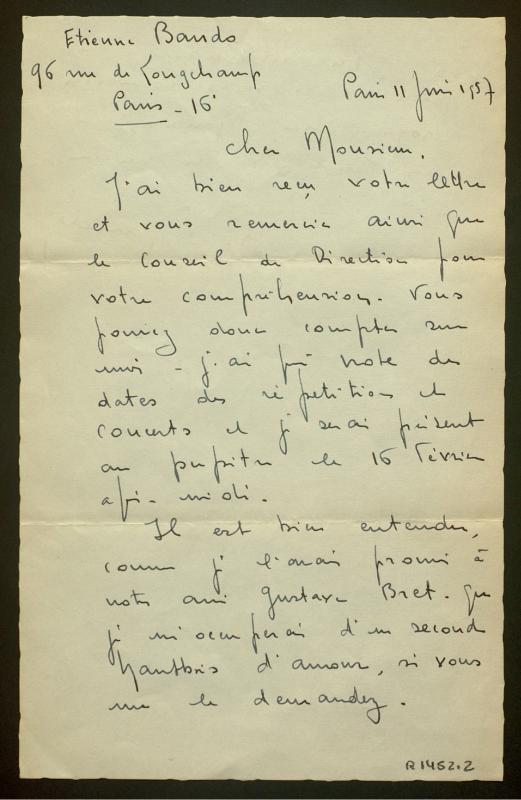 Etienne Baudo
96 rue de Longchamp
Paris - 16e
Paris 11 Juin 1957
Cher Monsieur,
J'ai bien reçu votre lettre
et vous remercie ainsi que
le Conseil de Direction pour
votre compréhension. Vous
pouvez donc compter sur
moi - j'ai pris note des
dates des répétitions et
concerts et je serai présent
au pupitre le 16 Février
après-midi.
Il est bien entendu,
comme je l'avais promis à
notre ami Gustave Bret. que
je m'occuperais d'un second
hautbois d'amour, si vous
me le demandez.
R1452.2